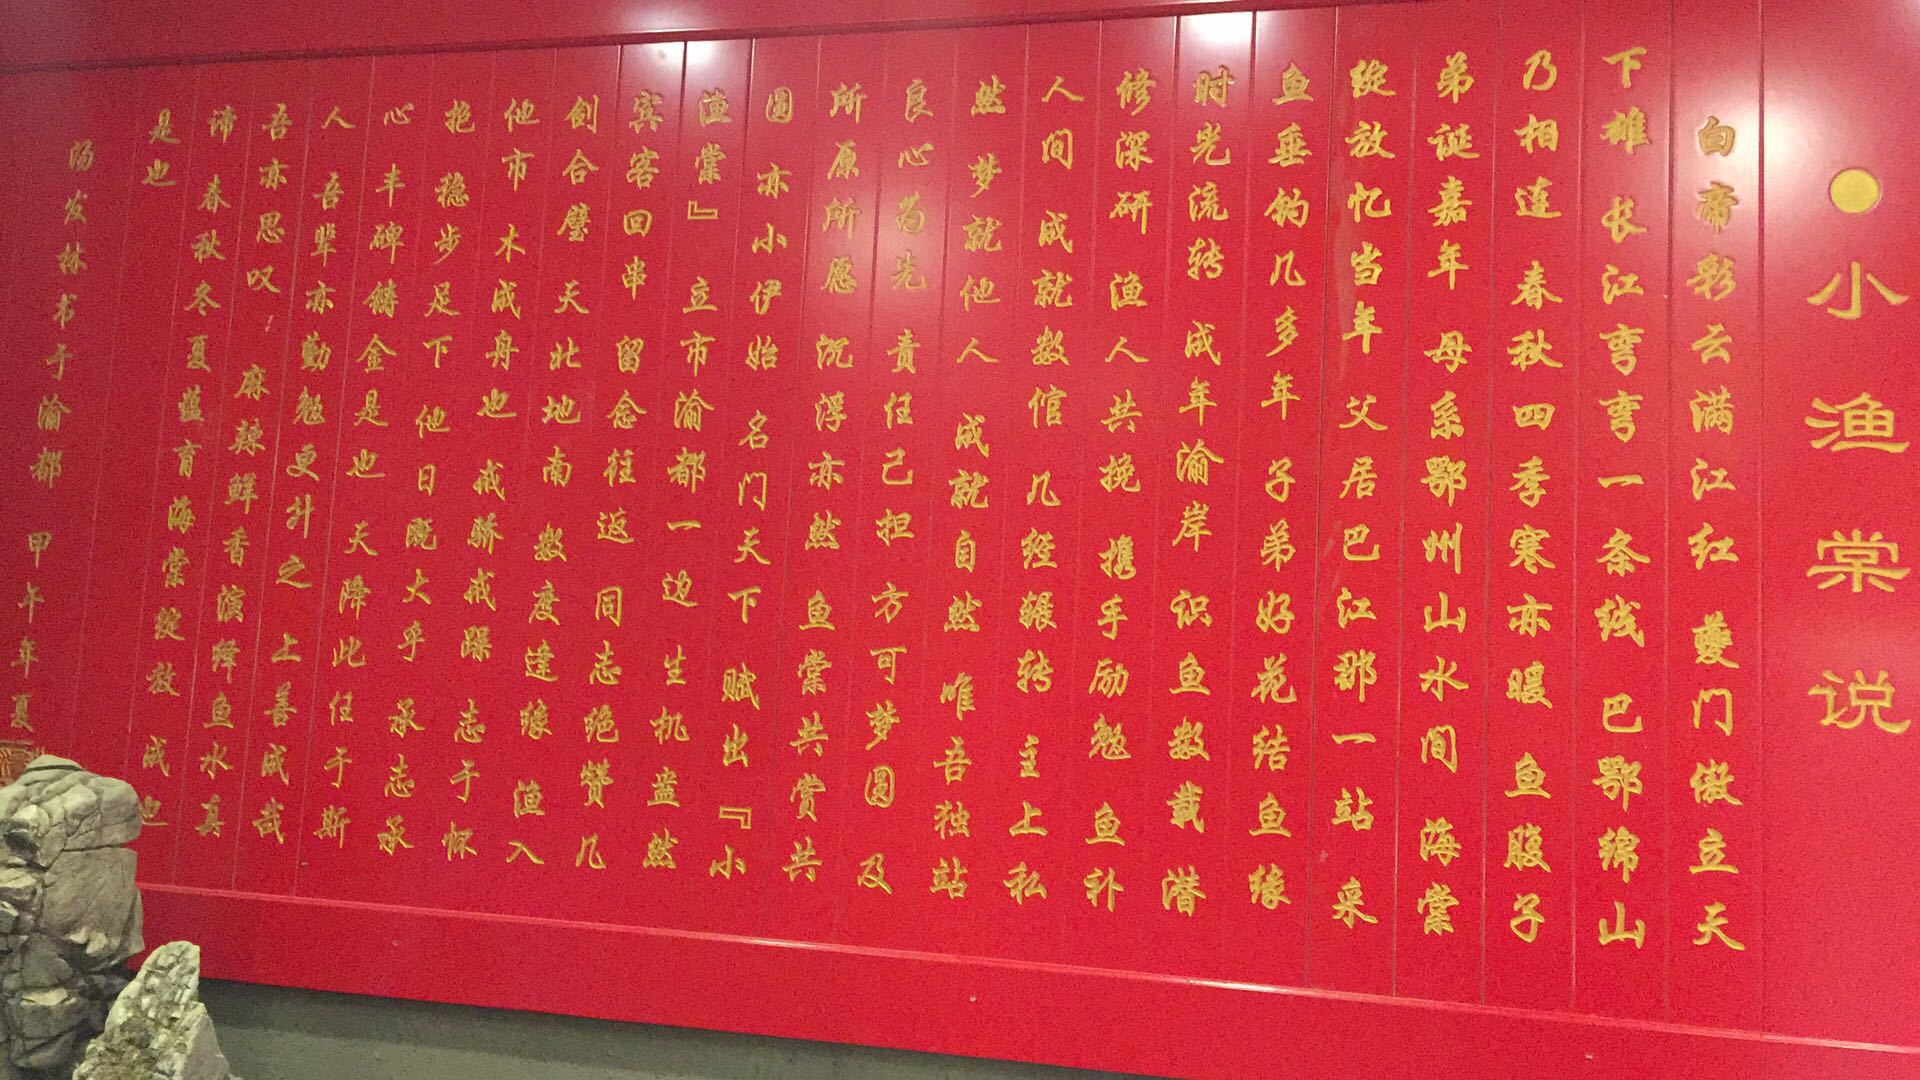 小渔棠说
白帝彩云满江红 夔门傲立天
下雄 长江弯弯一条线 巴鄂绵山
乃相连 春秋四季寒亦暖 鱼腹子
弟诞嘉年 母系鄂州山水间 海棠
绽放忆当年 父居巴江那一站 呆
鱼垂钓几多年 子弟好花结鱼缘
时光流转 成年渝岸 识鱼数载 潜
修深研 渔人共挽 携手励勉 鱼补
人间 成就数倌 几经辗转 主上私
然 梦就他人 成就自然 唯吾独站
良心为先 责任己担 方可梦圆 及
所原所愿 沉浮亦然 鱼棠共赏共
圆 亦小伊始 名门天下 赋出『小
渔棠』 立市渝都一边 生机盎然
宾客回串 留念往返 同志绝赞 几
剑合璧 天北地南 数度逢缘 渔入
他市 木成舟也 戒骄戒躁 志于怀
抱 稳步足下 他日既大乎 承志承
心 丰碑铸金是也 天降此任于斯
人 吾辈亦勤勉更升之 上善成哉
吾亦思叹 麻辣鲜香演绎鱼水真
谛 春秋冬夏蕴育海棠绽放 成也
是也
汤发林书于渝都 甲午年夏